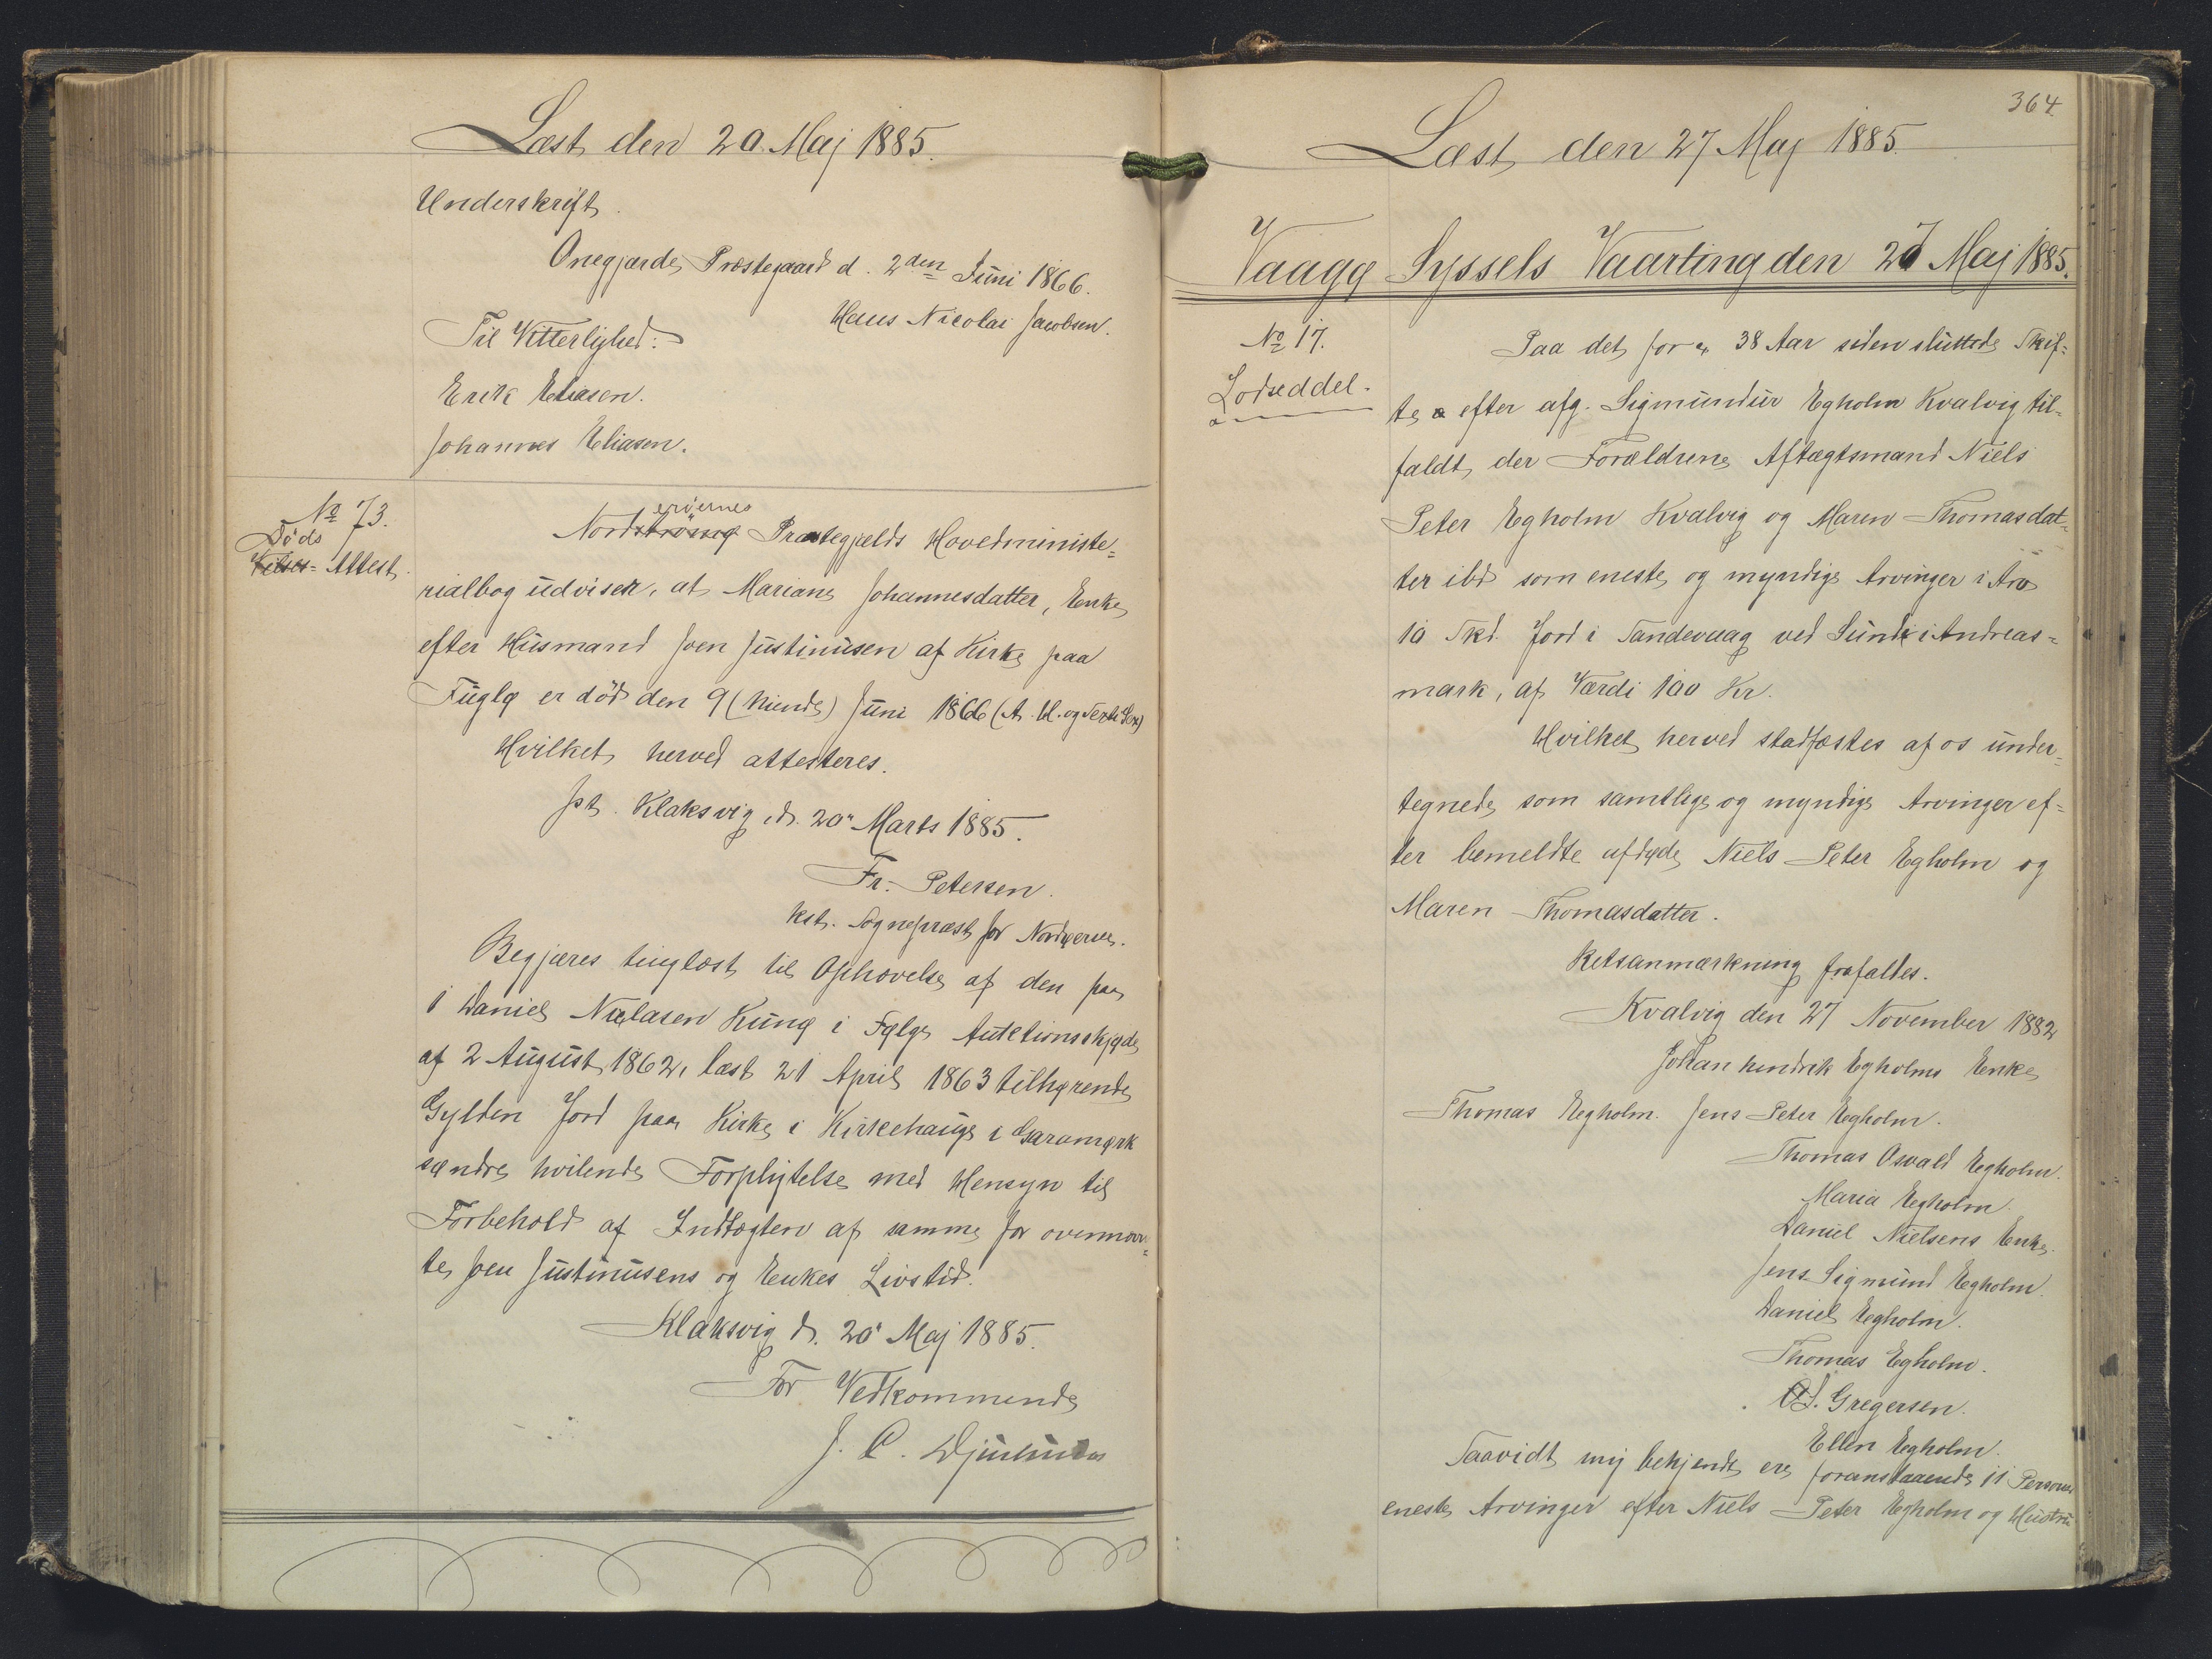 Læst den 20. Maj 1885.
Underskrift.
Onegjærde Præstegaard d. 2den Juni 1866.
Hans Nicolai Jacobsen.
Til Vitterlighed:
Erik Eliasen.
Johannes Eliasen.
No 73.
Döds
Vielses= Attest.
erøernes
Nordströmø Præstegjælds Hovedministe=
rialbog udviser, at Mariane Johannesdatter, Enke
efter Husmand Joen Justinusen af Kirke paa
Fuglø er död den 9 (niende) Juni 1866 (A. H. og Sex)
Hvilket herved attesteres.
pt. Klaksvig, d. 20 Marts 1885.
Fr. Petersen.
kst. Sognepræst for Norderøerne.
Begjæres tinglæst til Ophævelse af den paa
1 Daniel Nielasen Kung i Følge Auktionsskjøde
af 2 August 1862, læst 21 April 1863 tilhørende
Gylden Jord paa Kirke i Kirkehauge i Garamørk
søndre hvilende Forpligtelse med Hensyn til
Forbehold af Indtægten af samme for ovennævn=
te Joen Justinusens og Enkes Livstid.
Klaksvig d. 20 Maj 1885.
For Vedkommende
J. C. Djurhuus
364.
Læst den 27 Maj 1885.
Vaagø Syssels Vaarting den 27 Maj 1885.
No 17.
Lodseddel.
Paa det for 38 Aar siden sluttede Skif=
te efter afg. Sigmundur Egholm Kvalvig til=
faldt der Forældrene Aftægtsmand Niels
Peter Egholm Kvalvig og Maren Thomasdat=
ter ibd som eneste og myndige Arvinger i Arv
10 Skd. Jord i Sandevaag ved Sund i Andreas=
mark, af Værdi 100 Kr.
Hvilket herved stadfæstes af os under=
tegnede som samtlige og myndige Arvinger ef=
ter bemeldte afdøde Niels Peter Egholm og
Maren Thomasdatter.
Retsanmærkning frafaldes.
Kvalvig den 27 November 1882
Johan hendrik Egholms Enke
Thomas Egholm. Jens Peter Egholm.
Thomas Osvald Egholm.
Maria Egholm.
Daniel Nielsens Enke.
Jens Sigmund Egholm.
Daniel Egholm.
Thomas Egholm.
Gregersen.
Ellen Egholm.
Saavidt mig bekjendt ere foranstaaende 11 Personer
eneste Arvinger efter Niels Peter Egholm og Hustru